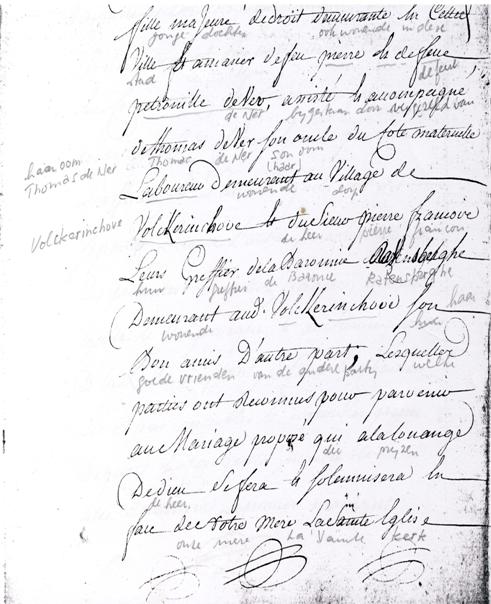 fille majeure de droit demeurante en Cette
jonge dochter ook wonende in dese
Ville et a marier de feu pierre et de feue
stad
petronille de Ner, assisté et accompagné
de Ner bygestaan door vergezeld van
de thomas de Ner son oncle du Coté maternelle
haar oom
Thomas de Ner
Thomas de Ner son oom
(haar)
Laboureur Demeurant au Village de
wonende dorp
Volckerinchove
Volckerinchove et du Sieur pierre francois
de heer pierre francois
Leurs Greffier de la Baronnie Ravensberghe
hun greffier de Baronie Ravensberghe
Demeurant aud. Volckerinchove son
wonende haar
Bon amis D'autre part, Lesquelles
goede vrienden van de andere partij welke
parties ont Reconnus pour parvenir
au Mariage proposé qui a la louange
die prijzen
De dieu se fera et solemnisera en
de heer
face de Notre Mere La Sainte Eglise
onze mere La Sainte kerk